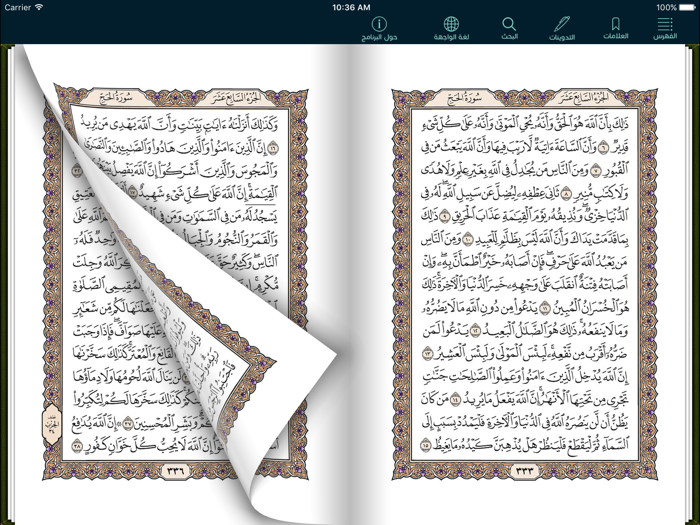 Carrier 10:36 AM 100%
الفهرس العلامات التدوينات البحث لغة الواجهة حول البرنامج
سُورَةُ الحَجِّ الجُزْءُ السَّابِعَ عَشَرَ
ذَٰلِكَ بِأَنَّ ٱللَّهَ هُوَ ٱلْحَقُّ وَأَنَّهُۥ يُحْىِ ٱلْمَوْتَىٰ وَأَنَّهُۥ عَلَىٰ كُلِّ شَىْءٍ
قَدِيرٌ ٦ وَأَنَّ ٱلسَّاعَةَ ءَاتِيَةٌ لَّا رَيْبَ فِيهَا وَأَنَّ ٱللَّهَ يَبْعَثُ مَن فِى
ٱلْقُبُورِ ٧ وَمِنَ ٱلنَّاسِ مَن يُجَٰدِلُ فِى ٱللَّهِ بِغَيْرِ عِلْمٍ وَلَا هُدًى
وَلَا كِتَٰبٍ مُّنِيرٍ ٨ ثَانِىَ عِطْفِهِۦ لِيُضِلَّ عَن سَبِيلِ ٱللَّهِ لَهُۥ فِى
ٱلدُّنْيَا خِزْىٌ وَنُذِيقُهُۥ يَوْمَ ٱلْقِيَٰمَةِ عَذَابَ ٱلْحَرِيقِ ٩ ذَٰلِكَ
بِمَا قَدَّمَتْ يَدَاكَ وَأَنَّ ٱللَّهَ لَيْسَ بِظَلَّٰمٍ لِّلْعَبِيدِ ١٠ وَمِنَ ٱلنَّاسِ
مَن يَعْبُدُ ٱللَّهَ عَلَىٰ حَرْفٍ فَإِنْ أَصَابَهُۥ خَيْرٌ ٱطْمَأَنَّ بِهِۦ وَإِنْ
أَصَابَتْهُ فِتْنَةٌ ٱنقَلَبَ عَلَىٰ وَجْهِهِۦ خَسِرَ ٱلدُّنْيَا وَٱلْءَاخِرَةَ ذَٰلِكَ
هُوَ ٱلْخُسْرَانُ ٱلْمُبِينُ ١١ يَدْعُوا۟ مِن دُونِ ٱللَّهِ مَا لَا يَضُرُّهُۥ
وَمَا لَا يَنفَعُهُۥ ذَٰلِكَ هُوَ ٱلضَّلَٰلُ ٱلْبَعِيدُ ١٢ يَدْعُوا۟ لَمَن
ضَرُّهُۥٓ أَقْرَبُ مِن نَّفْعِهِۦ لَبِئْسَ ٱلْمَوْلَىٰ وَلَبِئْسَ ٱلْعَشِيرُ ١٣
إِنَّ ٱللَّهَ يُدْخِلُ ٱلَّذِينَ ءَامَنُوا۟ وَعَمِلُوا۟ ٱلصَّٰلِحَٰتِ جَنَّٰتٍ
تَجْرِى مِن تَحْتِهَا ٱلْأَنْهَٰرُ إِنَّ ٱللَّهَ يَفْعَلُ مَا يُرِيدُ ١٤ مَن كَانَ
يَظُنُّ أَن لَّن يَنصُرَهُ ٱللَّهُ فِى ٱلدُّنْيَا وَٱلْءَاخِرَةِ فَلْيَمْدُدْ بِسَبَبٍ إِلَى
ٱلسَّمَآءِ ثُمَّ لْيَقْطَعْ فَلْيَنظُرْ هَلْ يُذْهِبَنَّ كَيْدُهُۥ مَا يَغِيظُ ١٥
٣٣٣
الجُزْءُ السَّابِعَ عَشَرَ سُورَةُ الحَجِّ
وَكَذَٰلِكَ أَنزَلْنَٰهُ ءَايَٰتٍۭ بَيِّنَٰتٍ وَأَنَّ ٱللَّهَ يَهْدِى مَن يُرِيدُ
١٦ إِنَّ ٱلَّذِينَ ءَامَنُوا۟ وَٱلَّذِينَ هَادُوا۟ وَٱلصَّٰبِـِٔينَ وَٱلنَّصَٰرَىٰ
وَٱلْمَجُوسَ وَٱلَّذِينَ أَشْرَكُوٓا۟ إِنَّ ٱللَّهَ يَفْصِلُ
ٱلْقِيَٰمَةِ إِنَّ ٱللَّهَ عَلَىٰ كُلِّ شَىْءٍ شَهِيدٌ
يَسْجُدُ لَهُۥ مَن فِى ٱلسَّمَٰوَٰتِ وَمَن فِى
وَٱلْقَمَرُ وَٱلنُّجُومُ وَٱلْجِبَالُ
ٱلنَّاسِ وَكَثِيرٌ وَٰحِدٌ فَلَهُۥٓ
ٱللَّهُ وَجِلَتْ
ٱلصَّلَوٰةِ
لَكُم مِّن شَعَٰٓئِرِ
عَلَيْهَا صَوَآفَّ فَإِذَا وَجَبَتْ
ٱلْقَانِعَ وَٱلْمُعْتَرَّ كَذَٰلِكَ سَخَّرْنَٰهَا
لَن يَنَالَ ٱللَّهَ لُحُومُهَا وَلَا دِمَآؤُهَا
كَذَٰلِكَ سَخَّرَهَا لَكُمْ لِتُكَبِّرُوا۟
وَبَشِّرِ ٱلْمُحْسِنِينَ ٣٧ إِنَّ ٱللَّهَ يُدَٰفِعُ
ٱللَّهَ لَا يُحِبُّ كُلَّ خَوَّانٍ كَفُورٍ ٣٨
٣٣٦